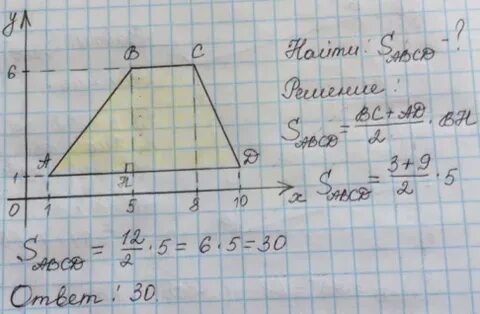 y
6
B
C
A
D
H
1
0
1
5
8
10
x
Найти: S_ABCD - ?
Решение:
S_ABCD = (BC + AD)/2 · BH
S_ABCD = (3+9)/2 · 5
S_ABCD = 12/2 · 5 = 6 · 5 = 30
Ответ: 30.